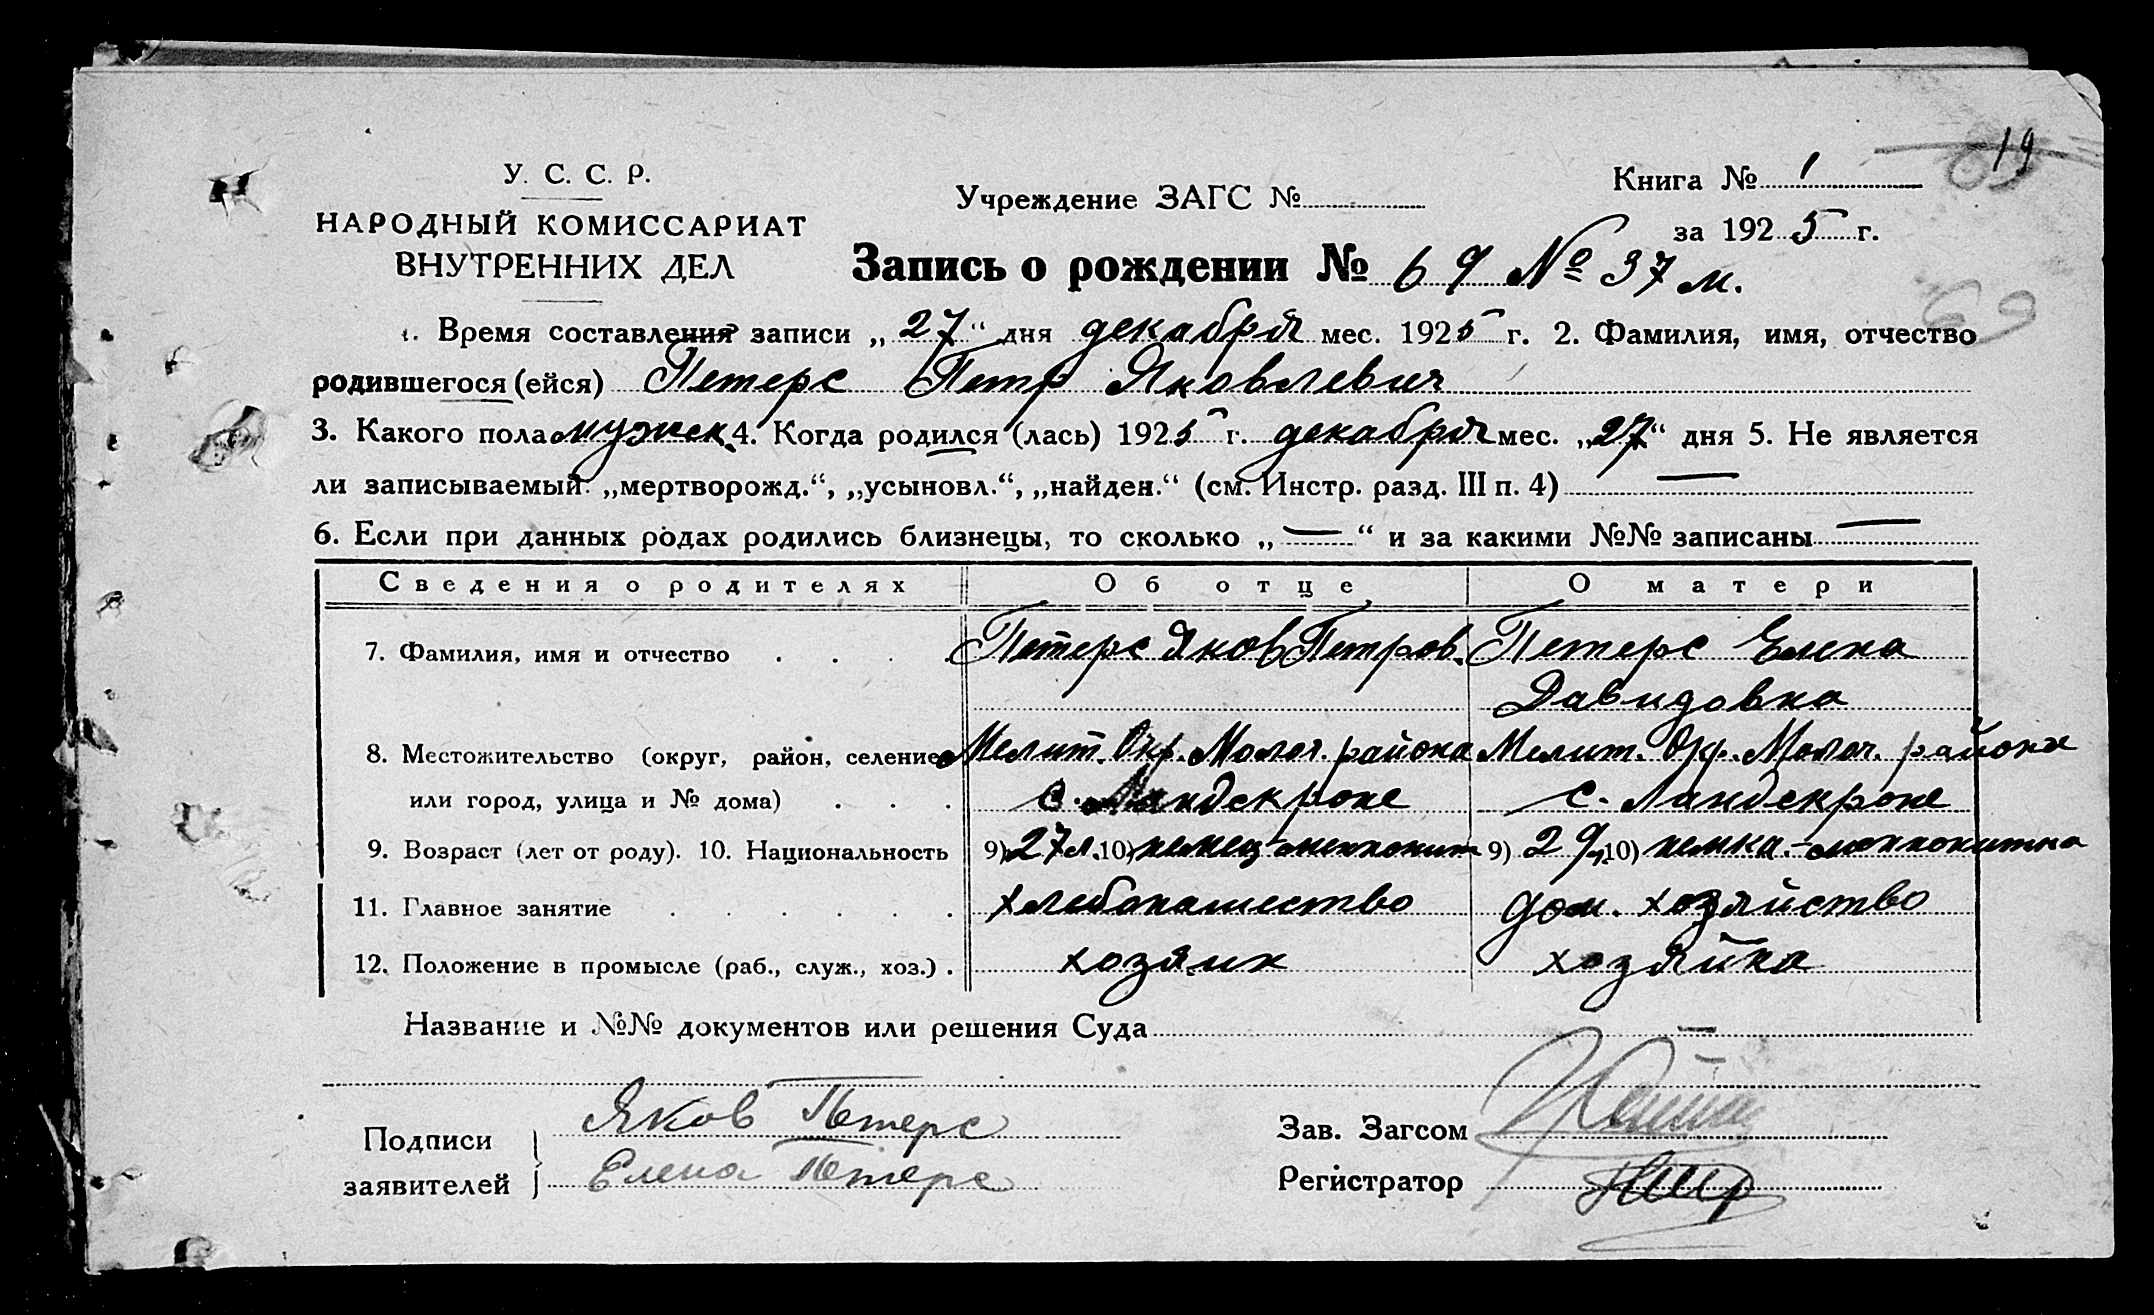 19
У. С. С. Р.
НАРОДНЫЙ КОМИССАРИАТ
ВНУТРЕННИХ ДЕЛ
Учреждение ЗАГС №
Книга № 1
за 1925 г.
69
Запись о рождении № 69 № 37 м.
1. Время составления записи „27“ дня декабря мес. 1925 г. 2. Фамилия, имя, отчество
родившегося (ейся) Петерс Петр Яковлевич
3. Какого пола мужск. 4. Когда родился (лась) 1925 г. декабря мес. „27“ дня 5. Не является
ли записываемый: „мертворожд.“, „усыновл.“, „найден.“ (см. Инстр. разд. III п. 4) —
6. Если при данных родах родились близнецы, то сколько „—“ и за какими №№ записаны —
Сведения о родителях Об отце О матери
7. Фамилия, имя и отчество Петерс Яков Петров. Петерс Елена
Давидовна
8. Местожительство (округ, район, селение Мелит. Окр. Молоч. района Мелит. Окр. Молоч. района
или город, улица и № дома) с. Ландскроне с. Ландскроне
9. Возраст (лет от роду). 10. Национальность 9) 27 л. 10) немец-меннонит 9) 29 10) немка-меннонитка
11. Главное занятие хлебопашество дом. хозяйство
12. Положение в промысле (раб., служ., хоз.) хозяин хозяйка
Название и №№ документов или решения Суда —
Подписи
заявителей
Яков Петерс
Елена Петерс
Зав. Загсом
Регистратор